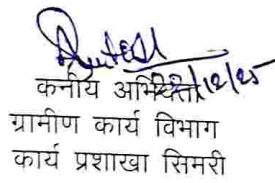 22/12/25
कनीय अभियंता
ग्रामीण कार्य विभाग
कार्य प्रशाखा सिमरी